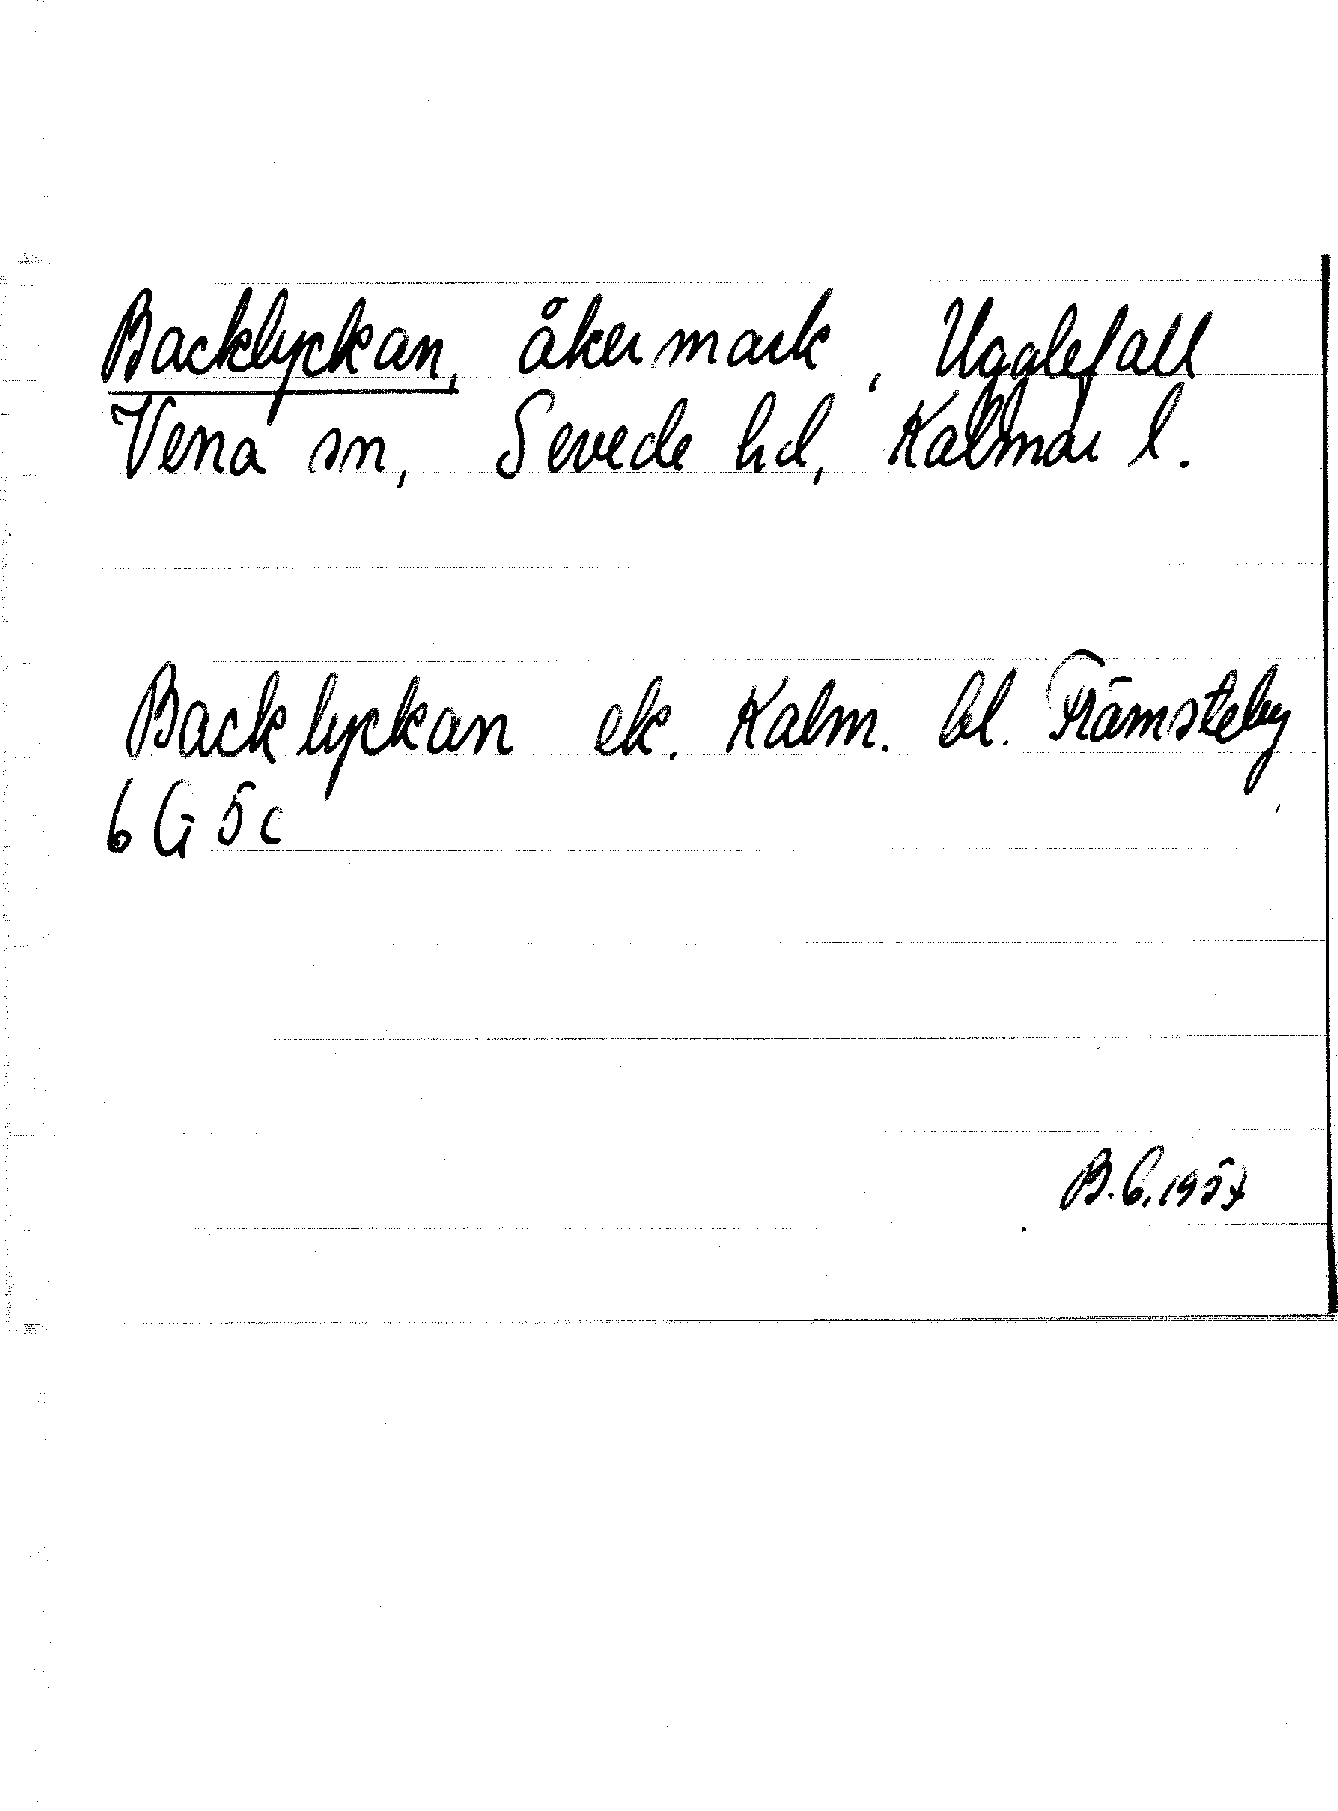 Backlyckan, åkermark, Ugglefall
Vena sn, Sevede hd, Kalmar l.
Backlyckan ek. Kalm. bl. Främsteby
6 G 5 c
B.G. 1957